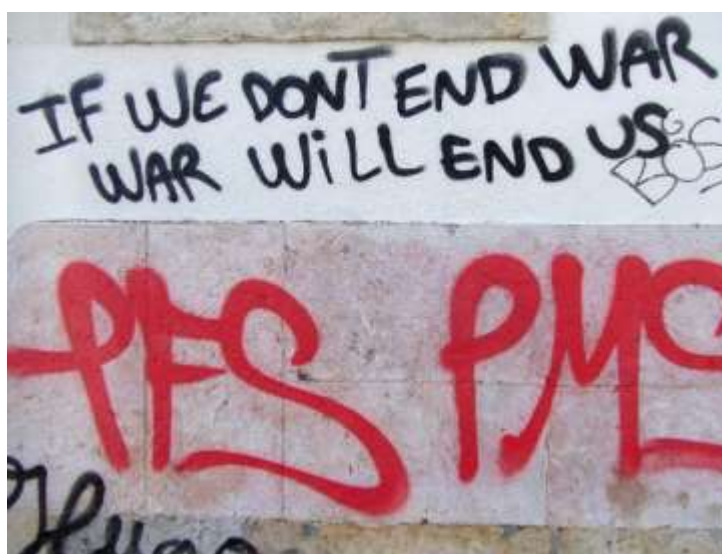 IF WE DONT END WAR
WAR WiLL END US
PFS PMS